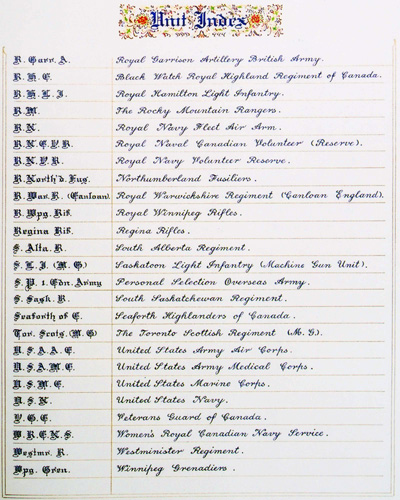 Unit Index
R. Garr. A. Royal Garrison Artillery British Army.
R. H. C. Black Watch Royal Highland Regiment of Canada.
R. H. L. I. Royal Hamilton Light Infantry.
R. M. The Rocky Mountain Rangers.
R. N. Royal Navy Fleet Air Arm.
R. N. C. V. R. Royal Naval Canadian Volunteer (Reserve).
R. N. V. R. Royal Navy Volunteer Reserve.
R. North'd. Fus. Northumberland Fusiliers.
R. War. R. (Canloan) Royal Warwickshire Regiment (Canloan England).
R. Wpg. Rif. Royal Winnipeg Rifles.
Regina Rif. Regina Rifles.
S. Alta. R. South Alberta Regiment.
S. L. I. (M. G) Saskatoon Light Infantry (Machine Gun Unit).
S. Army Personal Selection Overseas Army.
S. Sask. R. South Saskatchewan Regiment.
Seaforth of C. Seaforth Highlanders of Canada.
Tor. Scots. (M. G) The Toronto Scottish Regiment (M. G.).
U. S. A. A. C. United States Army Air Corps.
U. S. A. M. C. United States Army Medical Corps.
U. S. M. C. United States Marine Corps.
U. S. N. United States Navy.
V. G. C. Veterans Guard of Canada.
W. R. C. N. S. Women's Royal Canadian Navy Service.
Westmr. R. Westminister Regiment.
Wpg. Gren. Winnipeg Grenadiers.